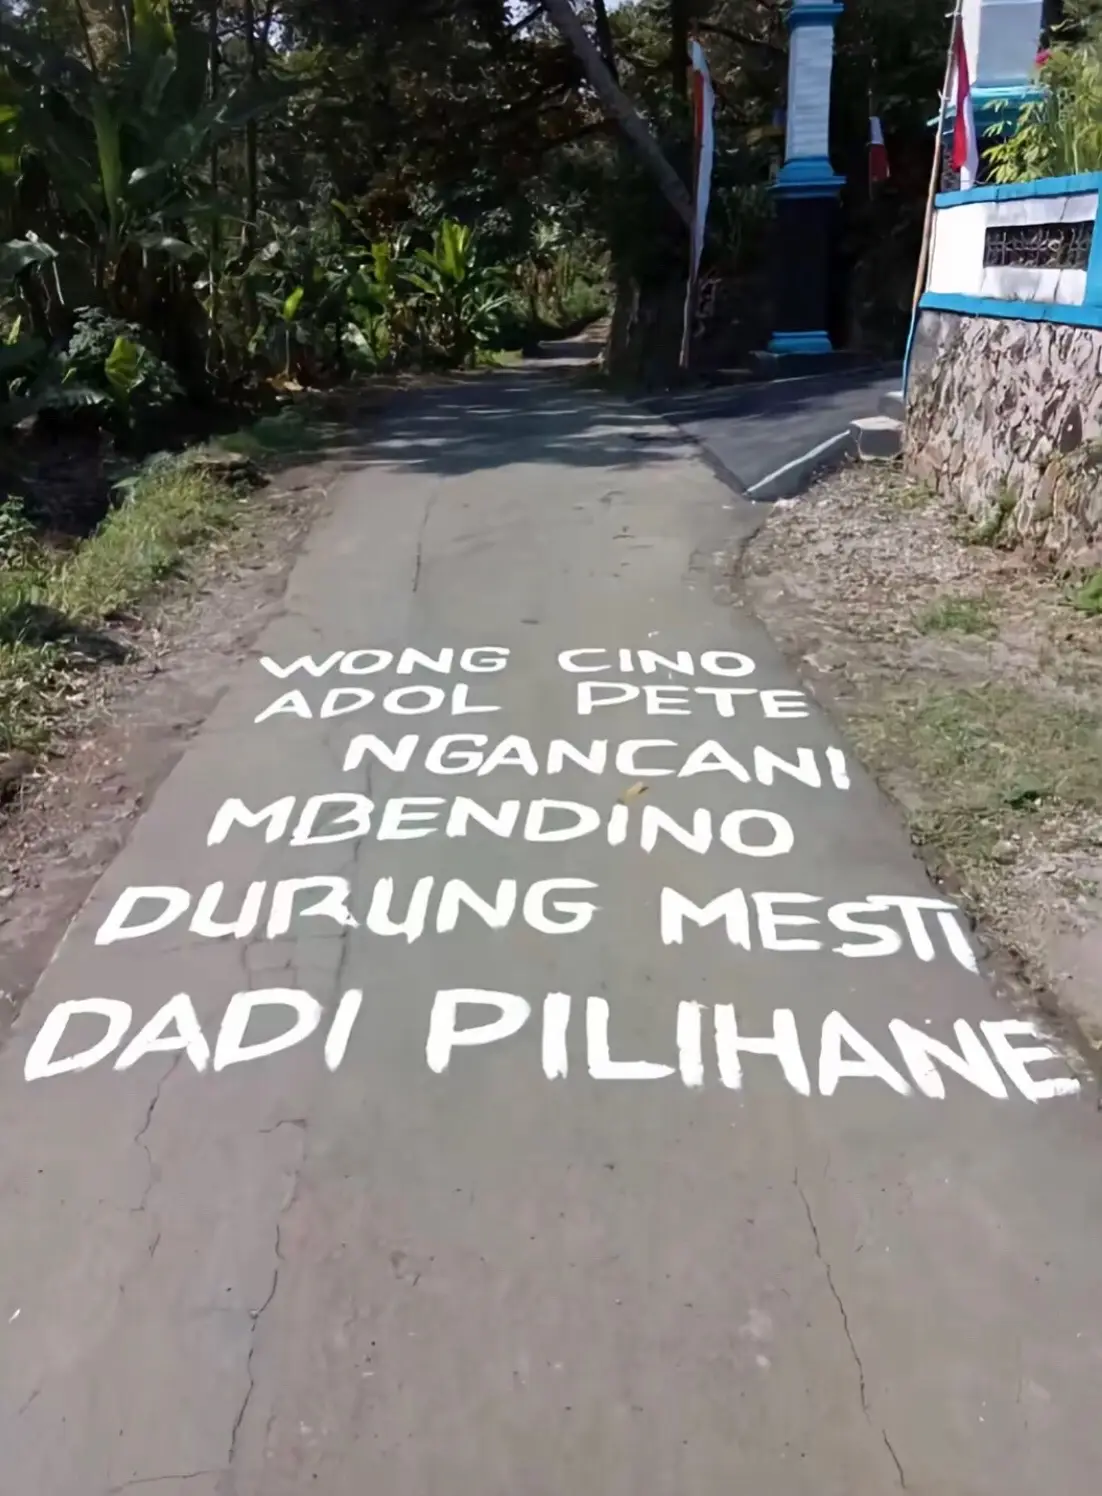 WONG CINO
ADOL PETE
NGANCANI
MBENDINO
DURUNG MESTI
DADI PILIHANE